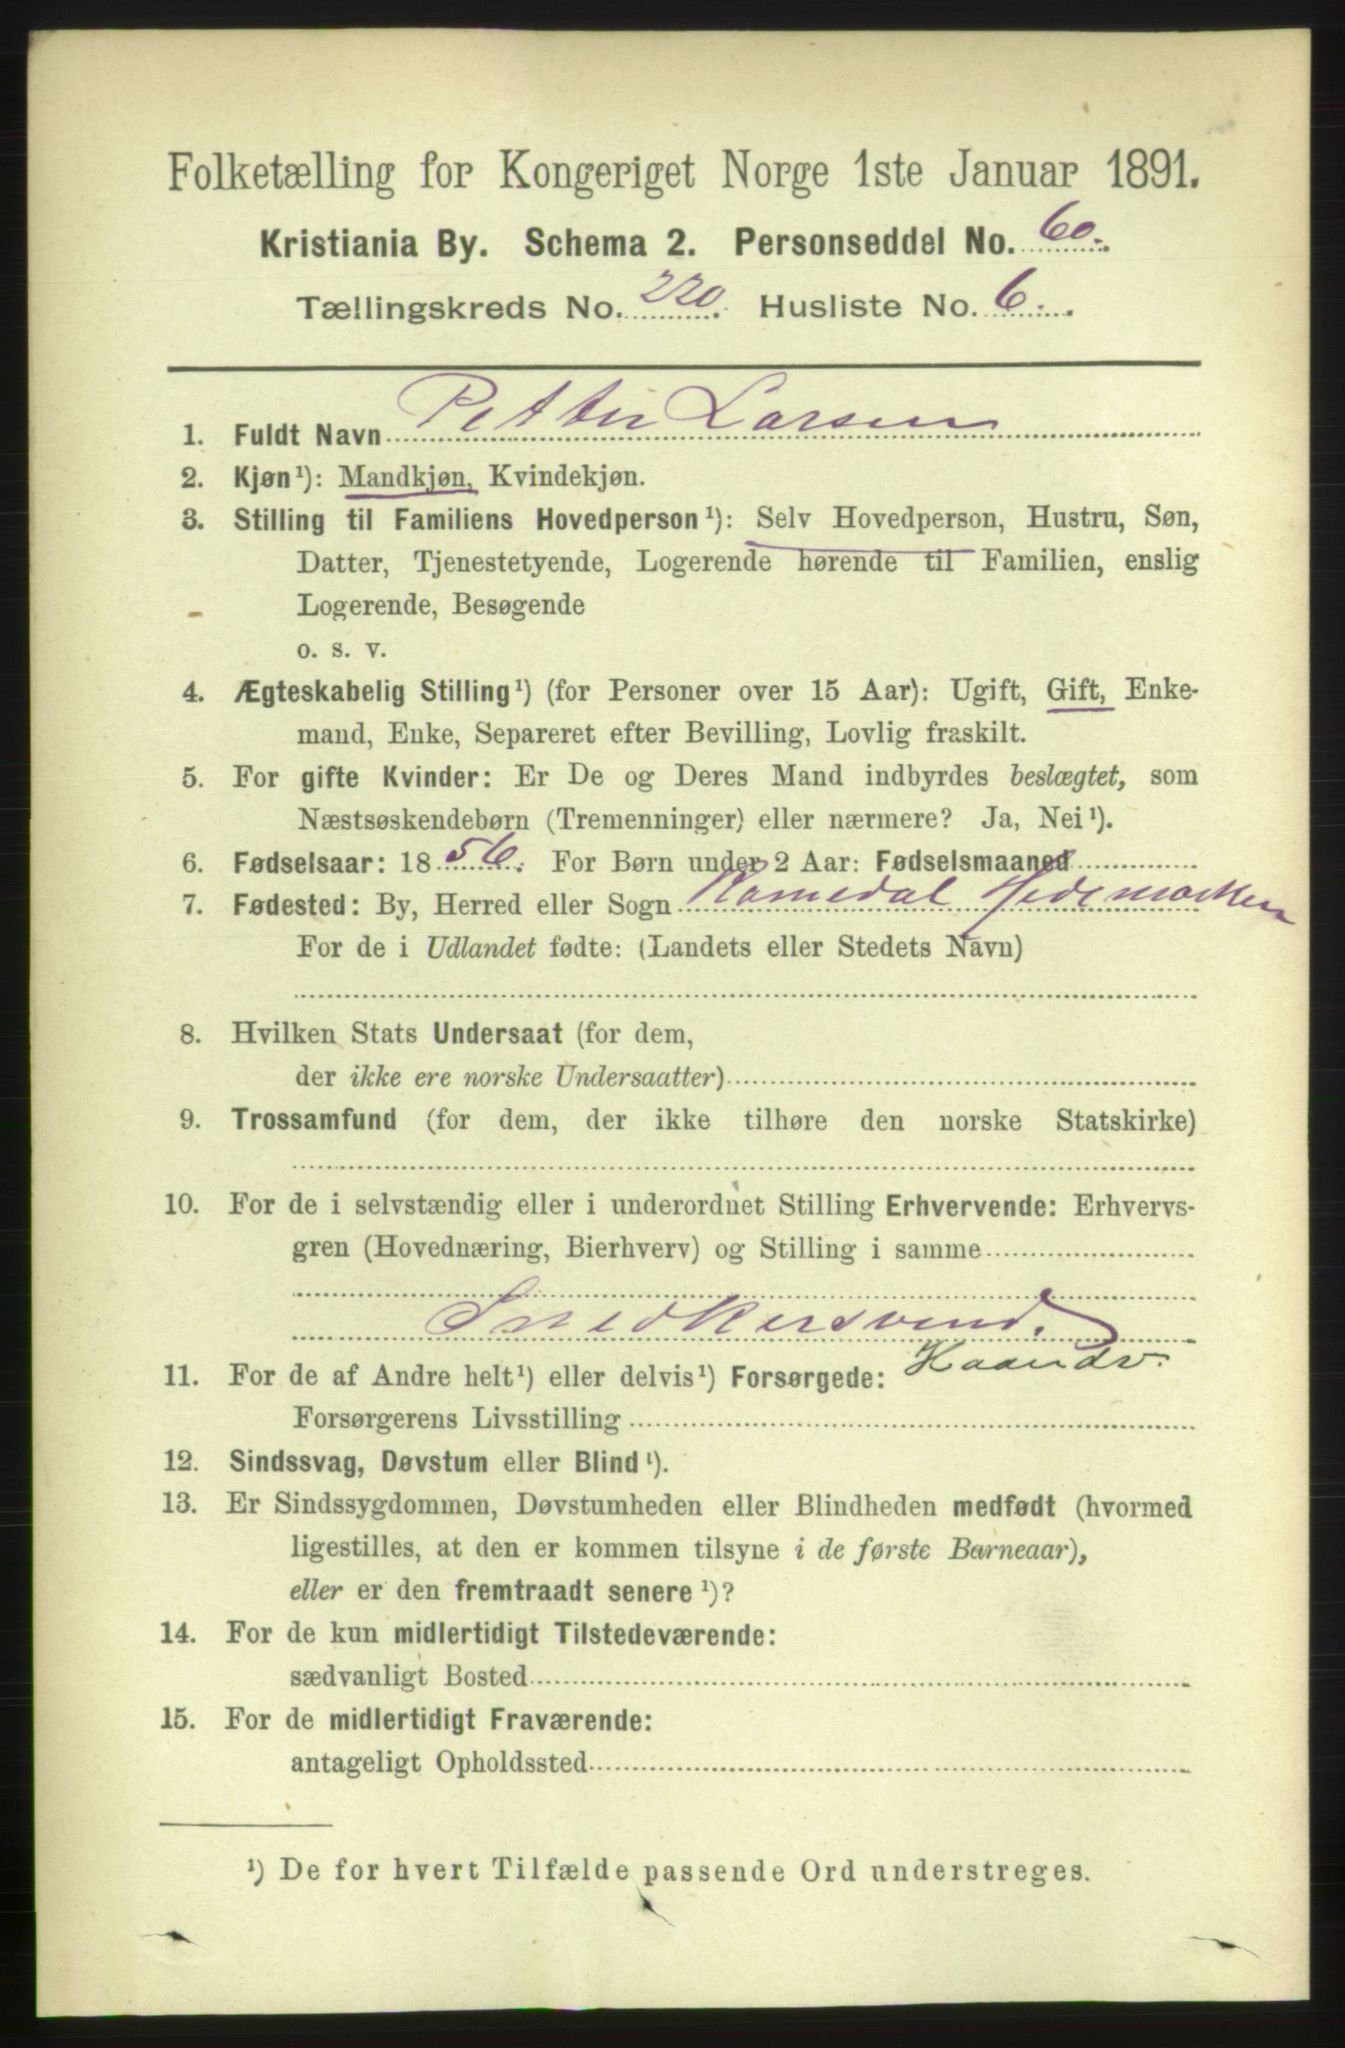 Folketælling for Kongeriget Norge 1ste Januar 1891.
Kristiania By. Schema 2. Personseddel No. 60.
Tællingskreds No. 220. Husliste No. 6.
1. Fuldt Navn Petter Larsen
2. Kjøn¹): Mandkjøn, Kvindekjøn.
3. Stilling til Familiens Hovedperson¹): Selv Hovedperson, Hustru, Søn,
Datter, Tjenestetyende, Logerende hørende til Familien, enslig
Logerende, Besøgende
o. s. v.
4. Ægteskabelig Stilling¹) (for Personer over 15 Aar): Ugift, Gift, Enke-
mand, Enke, Separeret efter Bevilling, Lovlig fraskilt.
5. For gifte Kvinder: Er De og Deres Mand indbyrdes beslægtet, som
Næstsøskendebørn (Tremenninger) eller nærmere? Ja, Nei¹).
6. Fødselsaar: 1856. For Børn under 2 Aar: Fødselsmaaned
7. Fødested: By, Herred eller Sogn Romedal Hedemarken
For de i Udlandet fødte: (Landets eller Stedets Navn)
8. Hvilken Stats Undersaat (for dem,
der ikke ere norske Undersaatter)
9. Trossamfund (for dem, der ikke tilhøre den norske Statskirke)
10. For de i selvstændig eller i underordnet Stilling Erhvervende: Erhvervs-
gren (Hovednæring, Bierhverv) og Stilling i samme
Snedkersvend.
Haandv.
11. For de af Andre helt¹) eller delvis¹) Forsørgede:
Forsørgerens Livsstilling
12. Sindssvag, Døvstum eller Blind¹).
13. Er Sindssygdommen, Døvstumheden eller Blindheden medfødt (hvormed
ligestilles, at den er kommen tilsyne i de første Barneaar),
eller er den fremtraadt senere¹)?
14. For de kun midlertidigt Tilstedeværende:
sædvanligt Bosted
15. For de midlertidigt Fraværende:
antageligt Opholdssted
¹) De for hvert Tilfælde passende Ord understreges.